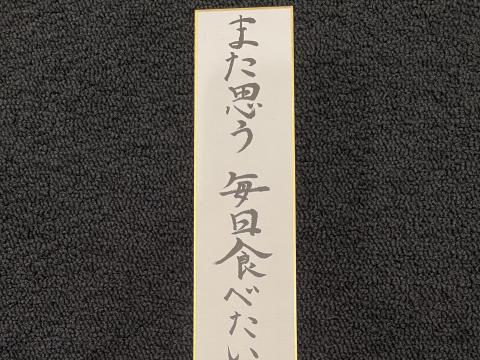 また思う 毎日食べたい